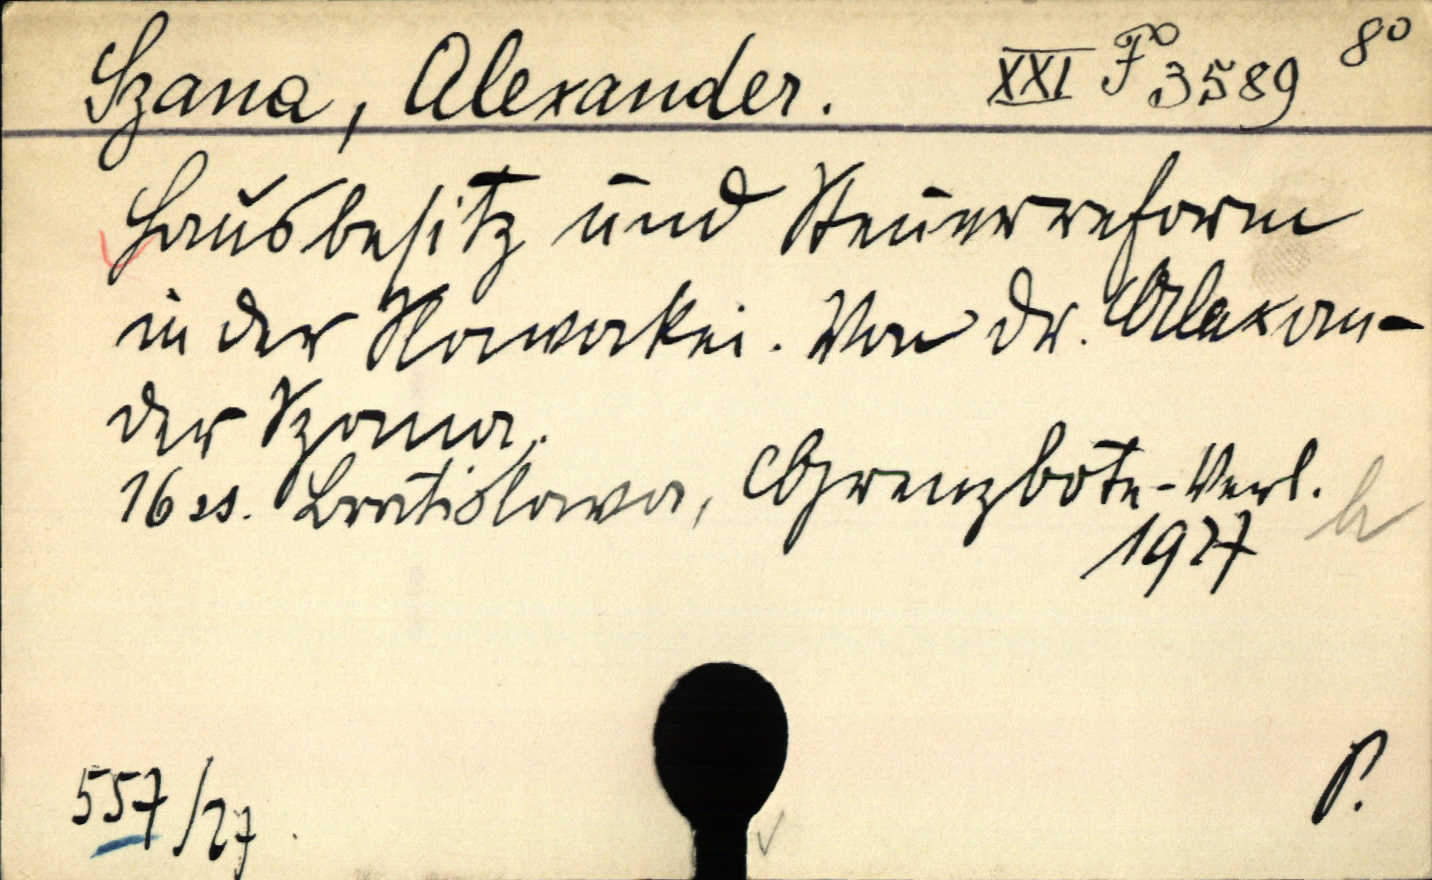 Szana, Alexander. XXI F° 3589 8°
Hausbesitz und Steuerreform
in der Slowakei. Von Dr. Alexan-
der Szana.
16 ss. Bratislava, Grenzbote-Verl.
1927
557/27
P.